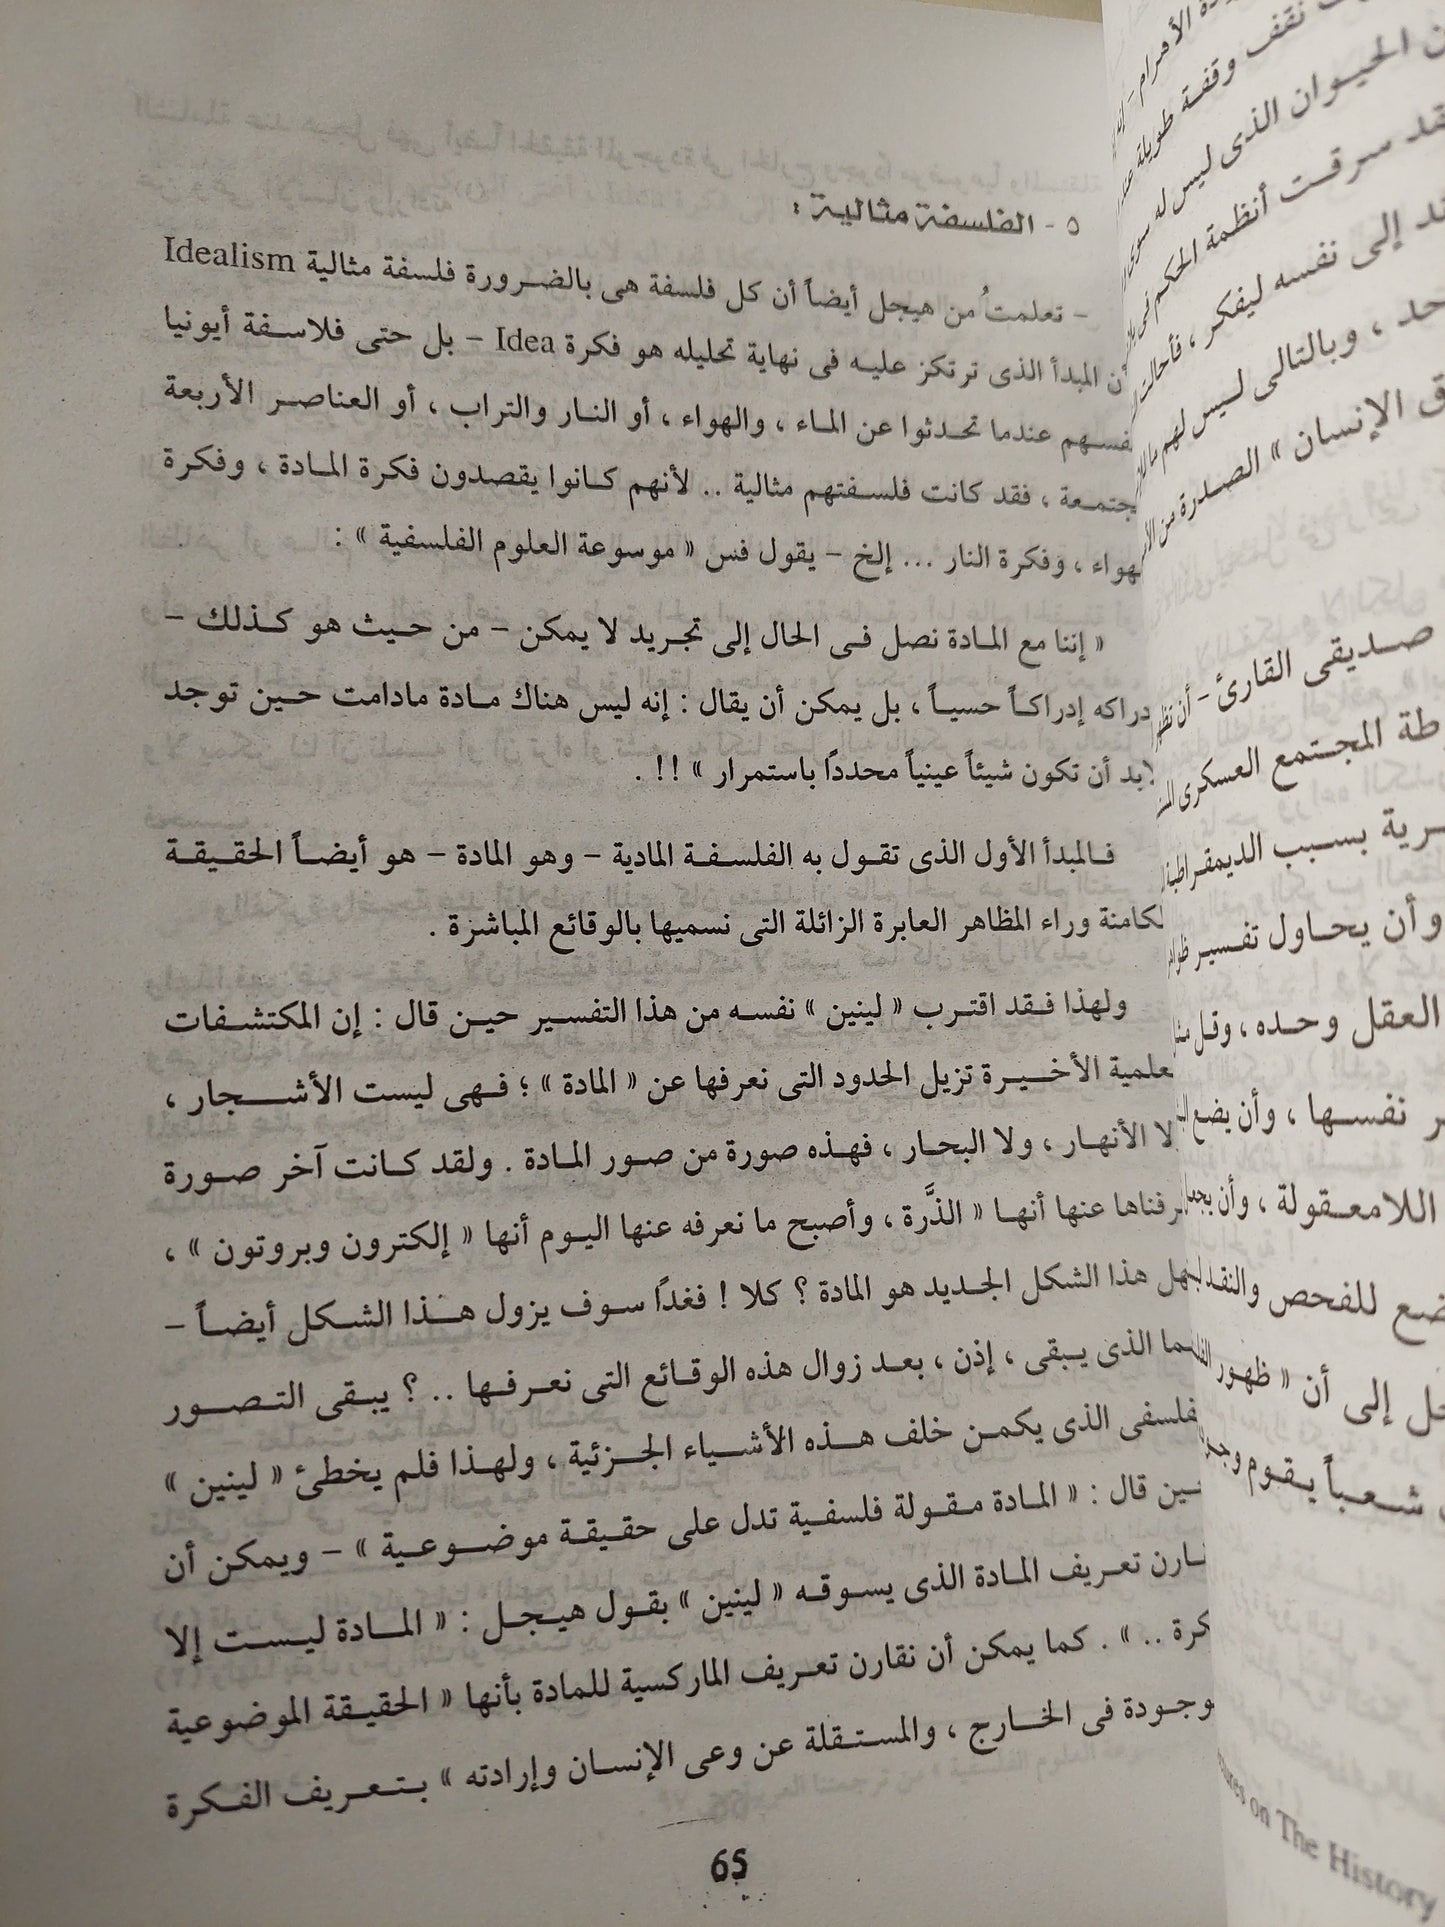 ٥ - الفلسفة مثالية :
- تعلمتُ من هيجل أيضاً أن كل فلسفة هى بالضرورة فلسفة مثالية Idealism
أن المبدأ الذى ترتكز عليه فى نهاية تحليله هو فكرة Idea - بل حتى فلاسفة أيونيا
عندما تحدثوا عن الماء ، والهواء ، أو النار والتراب ، أو العناصر الأربعة
، فقد كانت فلسفتهم مثالية .. لأنهم كانوا يقصدون فكرة المادة ، وفكرة
، وفكرة النار ... إلخ - يقول فس « موسوعة العلوم الفلسفية » :
« إننا مع المادة نصل فى الحال إلى تجريد لا يمكن - من حيث هو كذلك -
إدراكاً حسياً ، بل يمكن أن يقال : إنه ليس هناك مادة مادامت حين توجد
أن تكون شيئاً عينياً محددًا باستمرار » !! .
فالمبدأ الأول الذى تقول به الفلسفة المادية - وهو المادة - هو أيضاً الحقيقة
وراء المظاهر العابرة الزائلة التى نسميها بالوقائع المباشرة .
ولهذا فقد اقترب « لينين » نفسه من هذا التفسير حين قال : إن المكتشفات
الأخيرة تزيل الحدود التى نعرفها عن « المادة » ؛ فهى ليست الأشجار ،
الأنهار ، ولا البحار ، فهذه صورة من صور المادة . ولقد كانت آخر صورة
عنها أنها « الذَّرة ، وأصبح ما نعرفه عنها اليوم أنها « إلكترون وبروتون » ،
هذا الشكل الجديد هو المادة ؟ كلا ! فغدًا سوف يزول هذا الشكل أيضاً -
الذى يبقى ، إذن ، بعد زوال هذه الوقائع التى نعرفها .. ؟ يبقى التصور
الذى يكمن خلف هذه الأشياء الجزئية ، ولهذا فلم يخطئ « لينين »
قال : « المادة مقولة فلسفية تدل على حقيقة موضوعية » - ويمكن أن
تعريف المادة الذى يسوقه « لينين » بقول هيجل : « المادة ليست إلا
.. » . كما يمكن أن نقارن تعريف الماركسية للمادة بأنها « الحقيقة الموضوعية
فى الخارج ، والمستقلة عن وعى الإنسان وإرادته » بتعريف الفكرة
65
نقف وقفة طويلة
الحيوان الذى ليس له سوى
سرقت أنظمة الحكم
إلى نفسه ليفكر ، فأحالت
، وبالتالى ليس لهم
الإنسان » الصدرة من
صديقى القارئ - أن
المجتمع العسكرى
بسبب الديمقراطية
وأن يحاول تفسير
العقل وحده ، وقل
نفسها ، وأن يضع
اللامعقولة ، وأن
للفحص والنقد
إلى أن « ظهور
شعباً يقوم
on The History